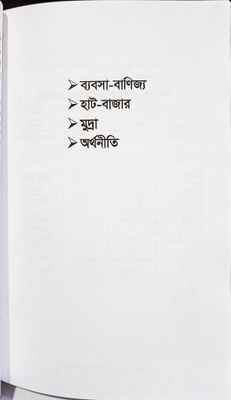 ➢ ব্যবসা-বাণিজ্য
➢ হাট-বাজার
➢ মুদ্রা
➢ অর্থনীতি